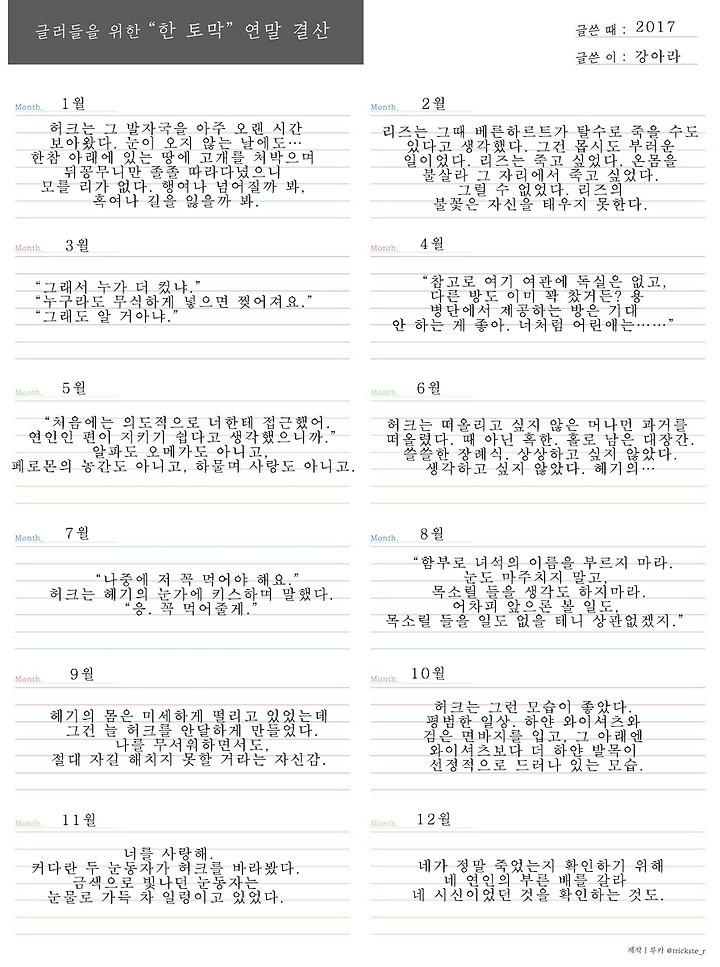 글러들을 위한 “한 토막” 연말 결산
글쓴 때 : 2017
글쓴 이 : 강아라
Month. 1월
허크는 그 발자국을 아주 오랜 시간
보아왔다. 눈이 오지 않는 날에도…
한참 아래에 있는 땅에 고개를 처박으며
뒤꽁무니만 졸졸 따라다녔으니
모를 리가 없다. 행여나 넘어질까 봐,
혹여나 길을 잃을까 봐.
Month. 2월
리즈는 그때 베른하르트가 탈수로 죽을 수도
있다고 생각했다. 그건 몹시도 부러운
일이었다. 리즈는 죽고 싶었다. 온몸을
불살라 그 자리에서 죽고 싶었다.
그럴 수 없었다. 리즈의
불꽃은 자신을 태우지 못한다.
Month. 3월
“그래서 누가 더 컸냐.”
“누구라도 무식하게 넣으면 찢어져요.”
“그래도 알 거아냐.”
Month. 4월
“참고로 여기 여관에 독실은 없고,
다른 방도 이미 꽉 찼거든? 용
병단에서 제공하는 방은 기대
안 하는 게 좋아. 너처럼 어린애는……”
Month. 5월
“처음에는 의도적으로 너한테 접근했어.
연인인 편이 지키기 쉽다고 생각했으니까.”
알파도 오메가도 아니고,
페로몬의 농간도 아니고, 하물며 사랑도 아니고.
Month. 6월
허크는 떠올리고 싶지 않은 머나먼 과거를
떠올렸다. 때 아닌 혹한. 홀로 남은 대장간.
쓸쓸한 장례식. 상상하고 싶지 않았다.
생각하고 싶지 않았다. 헤기의…
Month. 7월
“나중에 저 꼭 먹어야 해요.”
허크는 헤기의 눈가에 키스하며 말했다.
“응. 꼭 먹어줄게.”
Month. 8월
“함부로 녀석의 이름을 부르지 마라.
눈도 마주치지 말고,
목소릴 들을 생각도 하지마라.
어차피 앞으론 볼 일도,
목소릴 들을 일도 없을 테니 상관없겠지.”
Month. 9월
헤기의 몸은 미세하게 떨리고 있었는데
그건 늘 허크를 안달하게 만들었다.
나를 무서워하면서도,
절대 자길 해치지 못할 거라는 자신감.
Month. 10월
허크는 그런 모습이 좋았다.
평범한 일상. 하얀 와이셔츠와
검은 면바지를 입고, 그 아래엔
와이셔츠보다 더 하얀 발목이
선정적으로 드러나 있는 모습.
Month. 11월
너를 사랑해.
커다란 두 눈동자가 허크를 바라봤다.
금색으로 빛나던 눈동자는
눈물로 가득 차 일렁이고 있었다.
Month. 12월
네가 정말 죽었는지 확인하기 위해
네 연인의 부른 배를 갈라
네 시신이었던 것을 확인하는 것도.
제작 | 루카 @trickste_r